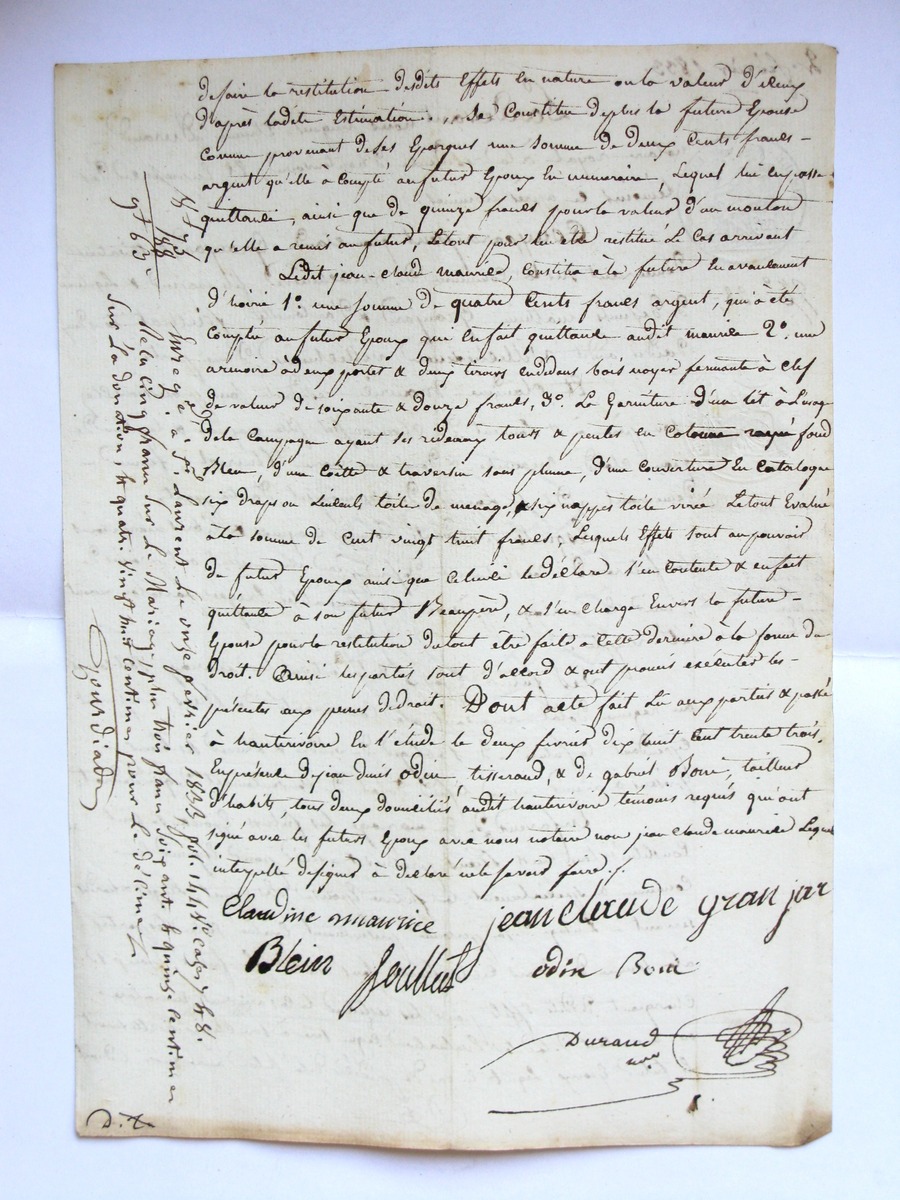 defaire la restitution desdits Effets en nature ou la valeur d'iceux
d'après ladite Estimation. Se Constitue deplus la future Epouse
comme provenant de ses Epargnes une somme de deux Cents francs
argent qu'elle à Compté au futur Epoux En numeraire, Lequel lui en passe
quittance, ainsi que de quinze francs pour la valeur d'un mouton
qu'elle a remis au futur, Le tout pour lui etre restitué Le Cas arrivant
Ledit jean-Claud maurice, constitua à la future En avancement
d'hoirie 1º une somme de quatre Cents francs argent, qui à été
comptée au futur Epoux qui en fait quittance audit maurice 2º. une
armoire à deux portes & deux tiroirs en dedans bois noyer fermante à clef
de valeur de soixante & douze francs, 3º. La Garniture d'un lit à l'usage
de la Campagne ayant ses rideaux tours & pentes en Cotonne rayée fond
Bleu, d'une Coëtte & traversin sans plume, d'une couverture En Catalogne
six draps ou Linceuls toile de menage, & six nappes toile virée Le tout Evalué
à la somme de Cent vingt huit francs, Lesquels Effets sont au pouvoir
du futur Epoux ainsi que Celui-ci le déclare s'en Contente & en fait
quittance à son futur Beaupère, & s'en Charge Envers la future
Epouse pour la restitution du tout être faite a Cette derniere à la forme du
droit. Ainsi les parties sont d'accord & ont promis exécuter les
présentes aux peines de droit. Dont acte fait Lu aux parties & passé
à hauterivoire En l'étude le deux fevrier dix huit Cent trente trois,
En présence de jean denis Odin, tisserand, & de gabriel Boni, tailleur
d'habits, tous deux domiciliés audit hauterivoire témoins requis qui ont
signé avec les futurs Epoux avec nous notaire non jean Claude maurice Lequel
interpellé de signer à declaré ne le savoir faire./.
Claudine maurice jean claude granjar
Blein odin Boni
Durand
nore
D. X.
Enregé à St. Laurent Le onze fevrier 1833, fol. 144 Vº. cases 7 & 8.
Reçu cinq francs sur Le Mariage, plus trois francs soixante & quinze centimes
sur La donation, & quatre vingt huit centimes pour Le décime
8f 75
88
9f 63c
Gourdiad